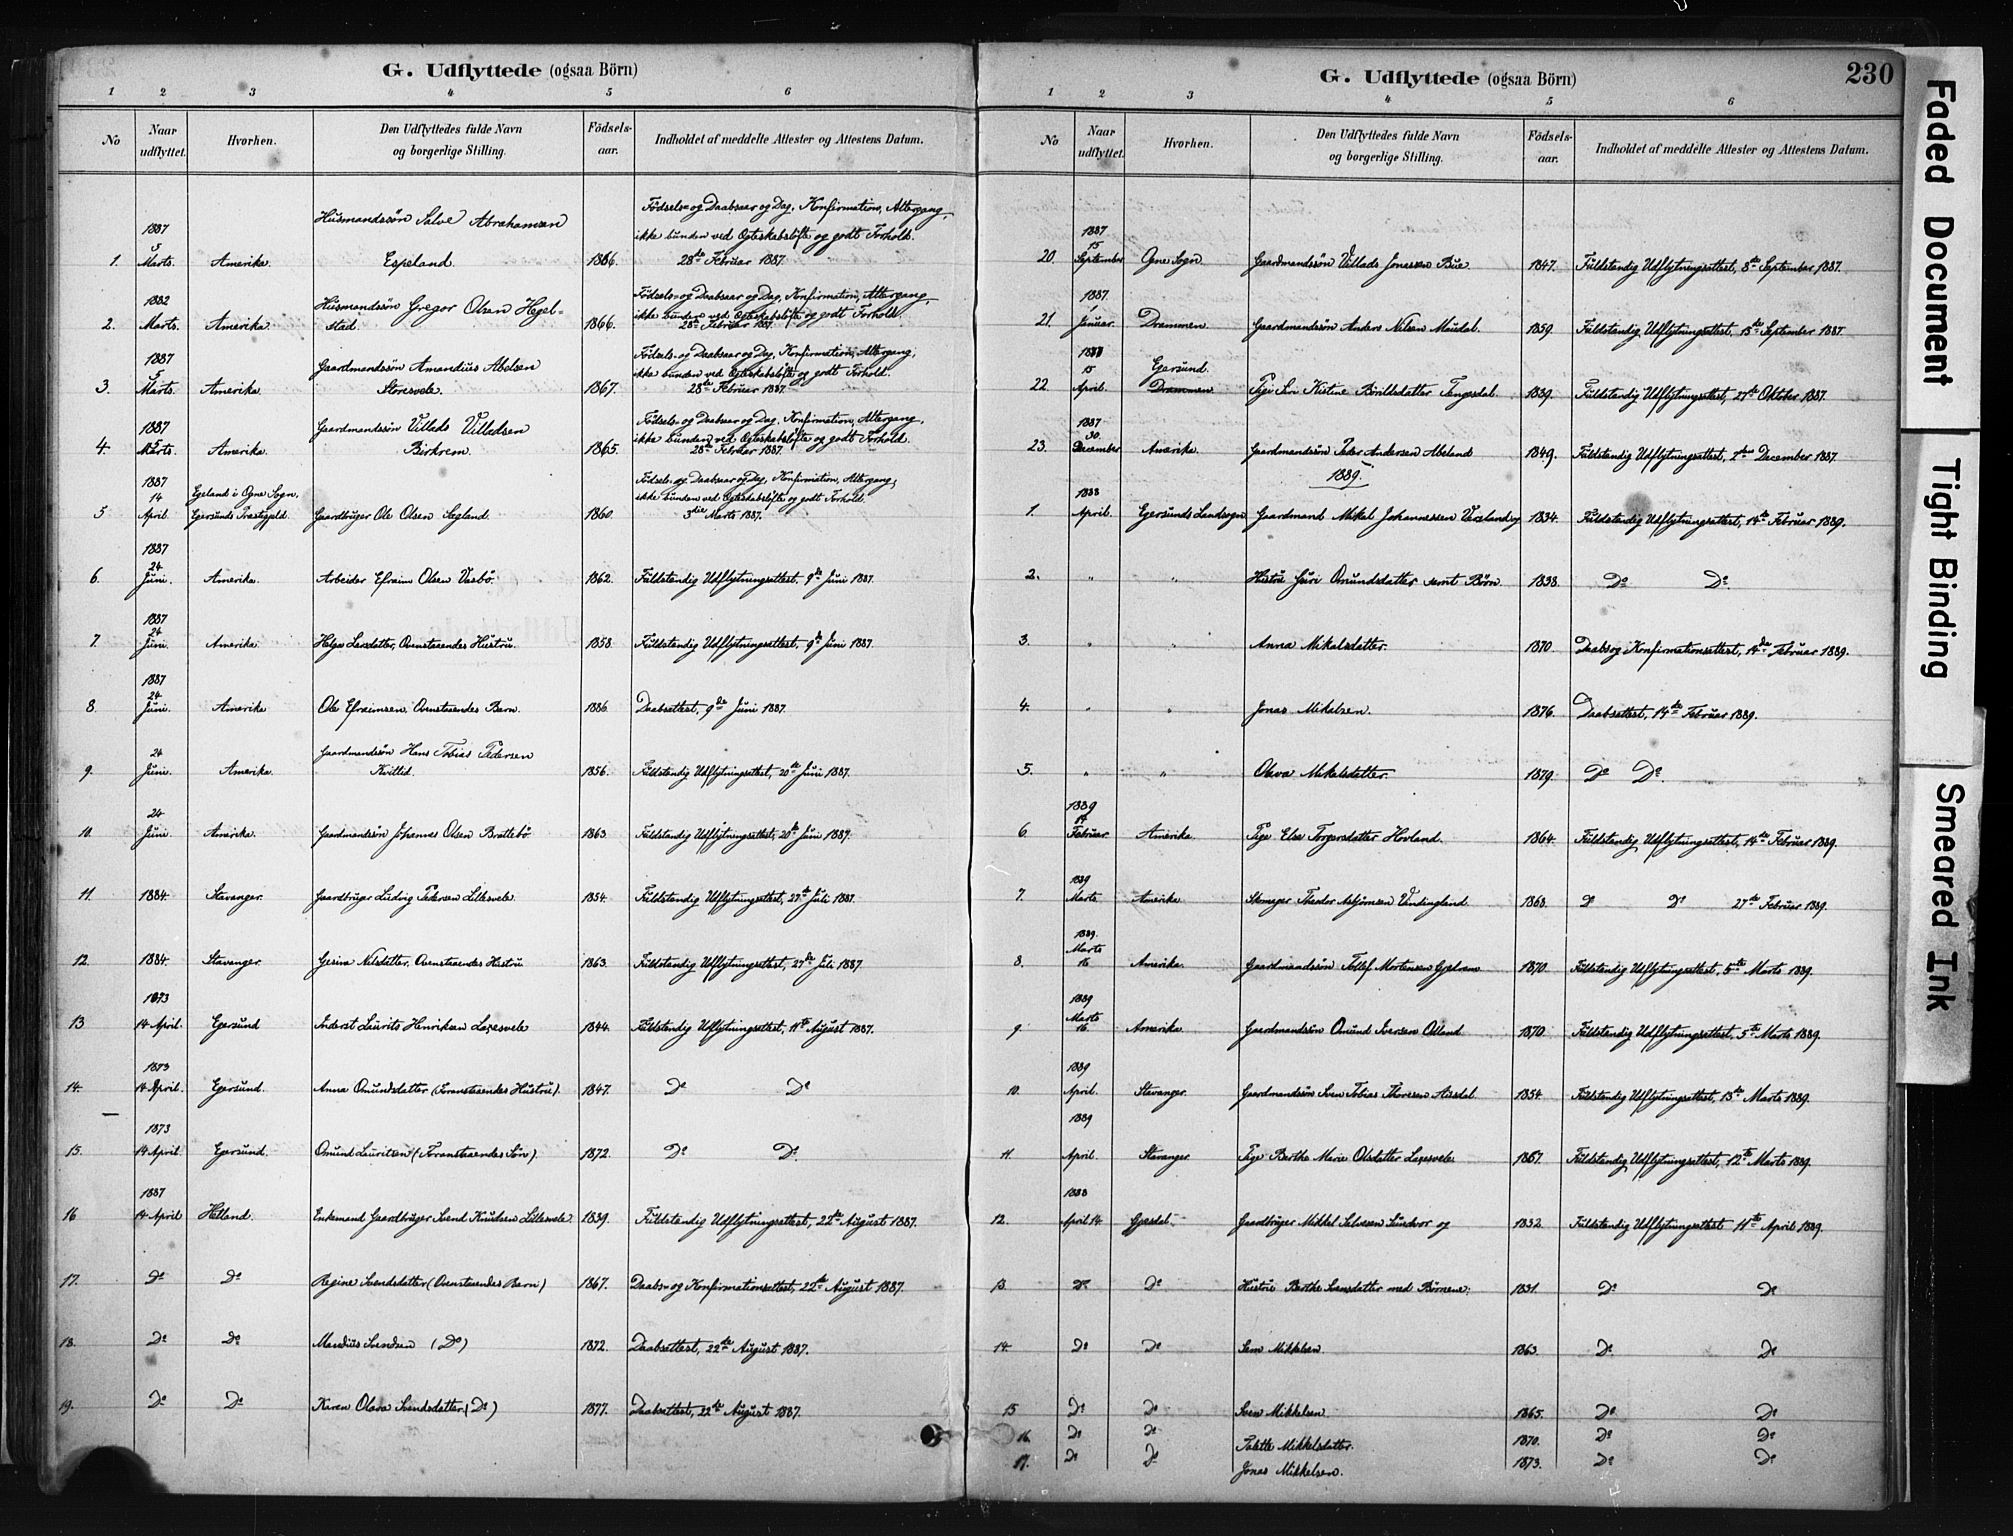 G. Udflyttede (ogsaa Börn)
1 2 3 4 5 6
No
Naar udflyttet.
Hvorhen.
Den Udflyttedes fulde Navn og borgerlige Stilling.
Födsels-aar.
Indholdet af meddelte Attester og Attestens Datum.
1. 1887 5 Marts. Amerika. Husmandssøn Salve Abrahamsen Espeland. 1866. Födsels- og Daabsaar og Dag, Konfirmation, Altergang, ikke bunden ved Egteskabsløfte og godt Forhold. 28de Februar 1887.
2. 1882 Marts. Amerika. Husmandssøn Gregor Olsen Hegelstad. 1866. Födsels- og Daabsaar og Dag, Konfirmation, Altergang, ikke bunden ved Egteskabsløfte og godt Forhold. 28de Februar 1887.
3. 1887 5 Marts. Amerika. Gaardmandssøn Amandius Abelsen Storesvele. 1867. Födsels- og Daabsaar og Dag, Konfirmation, Altergang, ikke bunden ved Egteskabsløfte og godt Forhold. 28de Februar 1887.
4. 1887 5 Marts. Amerika. Gaardmandssøn Villads Villadsen Birkrem. 1865. Födsels- og Daabsaar og Dag, Konfirmation, Altergang, ikke bunden ved Egteskabsløfte og godt Forhold. 28de Februar 1887.
5 1887 14 April. Egeland i Ogne Sogn, Egersunds Præstegjeld. Gaardbruger Ole Olsen Sægland. 1860. Födsels- og Daabsaar og Dag, Konfirmation, Altergang, ikke bunden ved Egteskabsløfte og godt Forhold. 3die Marts 1887.
6. 1887 24 Juni. Amerika. Arbeider Efraim Olsen Vasbø. 1862. Fuldstændig Udflytningsattest, 9de Juni 1887.
7. 1887 24 Juni. Amerika Helga Larsdatter, Ovenstaaendes Hustru. 1858. Fuldstændig Udflytningsattest, 9de Juni 1887.
8. 1887 24 Juni. Amerika Ole Efraimsen, Ovenstaaendes Barn. 1886. Daabsattest, 9de Juni 1887.
9. 24 Juni. Amerika. Gaardmandssøn Hans Tobias Pedersen Kvitlid. 1856. Fuldstændig Udflytningsattest, 20de Juni 1887.
10. 24 Juni. Amerika. Gaardmandssøn Johannes Olsen Brattebø 1863 Fuldstændig Udflytningsattest, 20de Juni 1887.
11. 1884. Stavanger. Gaardbruger Ludvig Pedersen Lillesvele. 1854. Fuldstændig Udflytningsattest, 27de Juli 1887.
12. 1884. Stavanger. Gesine Nilsdatter, Ovenstaaendes Hustru 1863. Fuldstændig Udflytningsattest, 27de Juli 1887
13 1873 14 April. Egersund Inderst Laurits Henriksen Læresvele 1844. Fuldstændig Udflytningsattest, 11te August 1887.
14. 1873 14 April. Egersund. Anna Omundsdatter (Foranstaaendes Hustru). 1847. Do Do
15. 1873 14 April Egersund. Omund Lauritsen (Foranstaaendes Søn). 1872. Do Do.
16 1887 14 April Helland. Enkemand Gaardbruger Svend Knudsen Lillesvele. 1839. Fuldstændig Udflytningsattest, 22de August 1887.
17. Do Do Regine Svendsdatter (Ovenstaaendes Barn) 1867. Daabs- og Konfirmationsattest, 22de August 1887.
18. Do Do Mandius Svendsen (Do) 1872. Daabsattest, 22de August 1887.
19. Do Do Karen Olava Svendsdatter (Do) 1877. Daabsattest, 22de August 1887.
G. Udflyttede (ogsaa Börn)
230
1 2 3 4 5 6
No
Naar udflyttet.
Hvorhen.
Den Udflyttedes fulde Navn og borgerlige Stilling.
Födsels-aar.
Indholdet af meddelte Attester og Attestens Datum.
20. 1887 15 September Ogne Sogn Gaardmandssøn Villads Jonassen Bue. 1847. Fuldstændig Udflytningsattest, 8de September 1887.
21. 1887. Januar. Drammen. Gaardmandssøn Anders Nilsen Maudal. 1859. Fuldstændig Udflytningsattest, 15de September 1887
22. 15 April. Egersund. Drammen. Pige Kistine Børildsdatter Tengesdal. 1839. Fuldstændig Udflytningsattest, 27de Oktober 1887.
23. 1887 30. December Amerika. Gaardmandssøn Peder Andersen Abeland 1849. Fuldstændig Udflytningsattest, 2den December 1887.
1889.
1. 1888 April. Egersunds Landsogn Gaardmand Mikal Johannessen Vaslandog 1834. Fuldstændig Udflytningsattest, 14de Februar 1889.
2. " " Hustru Guri Omundsdatter samt Børn 1838. Do Do.
3. " " Anna Mikalsdatter. 1870. Daabs og Konfirmationsattest, 14de Februar 1889.
4. " " Jonas Mikalsen. 1876. Daabsattest, 14de Februar 1889.
5. " " Olava Mikalsdatter. 1879. Do Do.
6. 1889 17 Februar Amerika. Pige Elsa Torgersdatter Hovland. 1864. Fuldstændig Udflytningsattest, 14de Februar 1889.
7. 1889 Marts Amerika Skomager Theodor Asbjørnsen Vindingland 1868. Do Do 27de Februar 1889.
8. 1889. Marts 16 Amerika. Gaardmandssøn Tollef Mortensen Gjedrem 1870. Fuldstændig Udflytningsattest, 5te Marts 1889.
9. 1889 Marts 16 Amerika. Gaardmandssøn Omund Iversen Odland 1870. Fuldstændig Udflytningsattest, 5te Marts 1889.
10. 1889 April. Stavanger. Gaardmandssøn Sven Tobias Thorsen Aasdal 1854 Fuldstændig Udflytningsattest, 13de Marts 1889.
11. 1889 April. Stavanger Pige Berthe Marie Olsdatter Læresvele 1867. Fuldstændig Udflytningsattest, 12te Marts 1889.
12. 1888 April 14 Gjæsdal. Gaardbruger Mikkel Salvesen Sundvor og 1832. Fuldstændig Udflytningsattest 11te April 1889.
13. Do Do Hustru Berthe Svensdatter med Børnene: 1831. Do Do
14 Do Do Sem Mikkelsen 1863. Do. Do
15 Do Do Sven Mikkelsen 1865. Do Do
16. Do Do Tolette Mikkelsdatter. 1870. Do Do
17. Do Do Jonas Mikkelsen. 1873. Do Do
Faded Document
Tight Binding
Smeared Ink